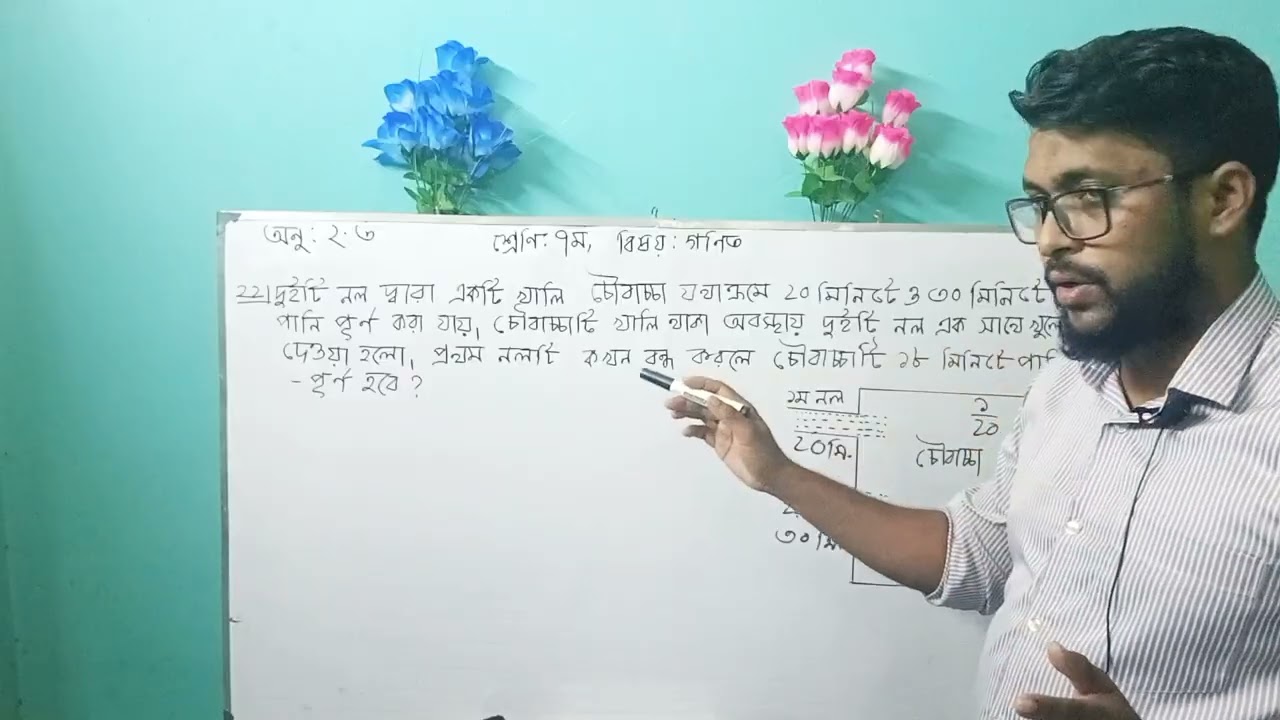 অনু: ২.৩
শ্রেণি: ৭ম, বিষয়: গনিত
22। দুইটি নল দ্বারা একটি খালি চৌবাচ্চা যথাক্রমে 20 মিনিটে ও ৩০ মিনিটে
পানি পূর্ণ করা যায়, চৌবাচ্চাটি খালি থাকা অবস্থায় দুইটি নল এক সাথে খুলে
দেওয়া হলো, প্রথম নলটি কখন বন্ধ করলে চৌবাচ্চাটি ১৮ মিনিটে
- পূর্ণ হবে ?
১ম নল
20 মি.
১
20
চৌবাচ্চা
৩০ মি.